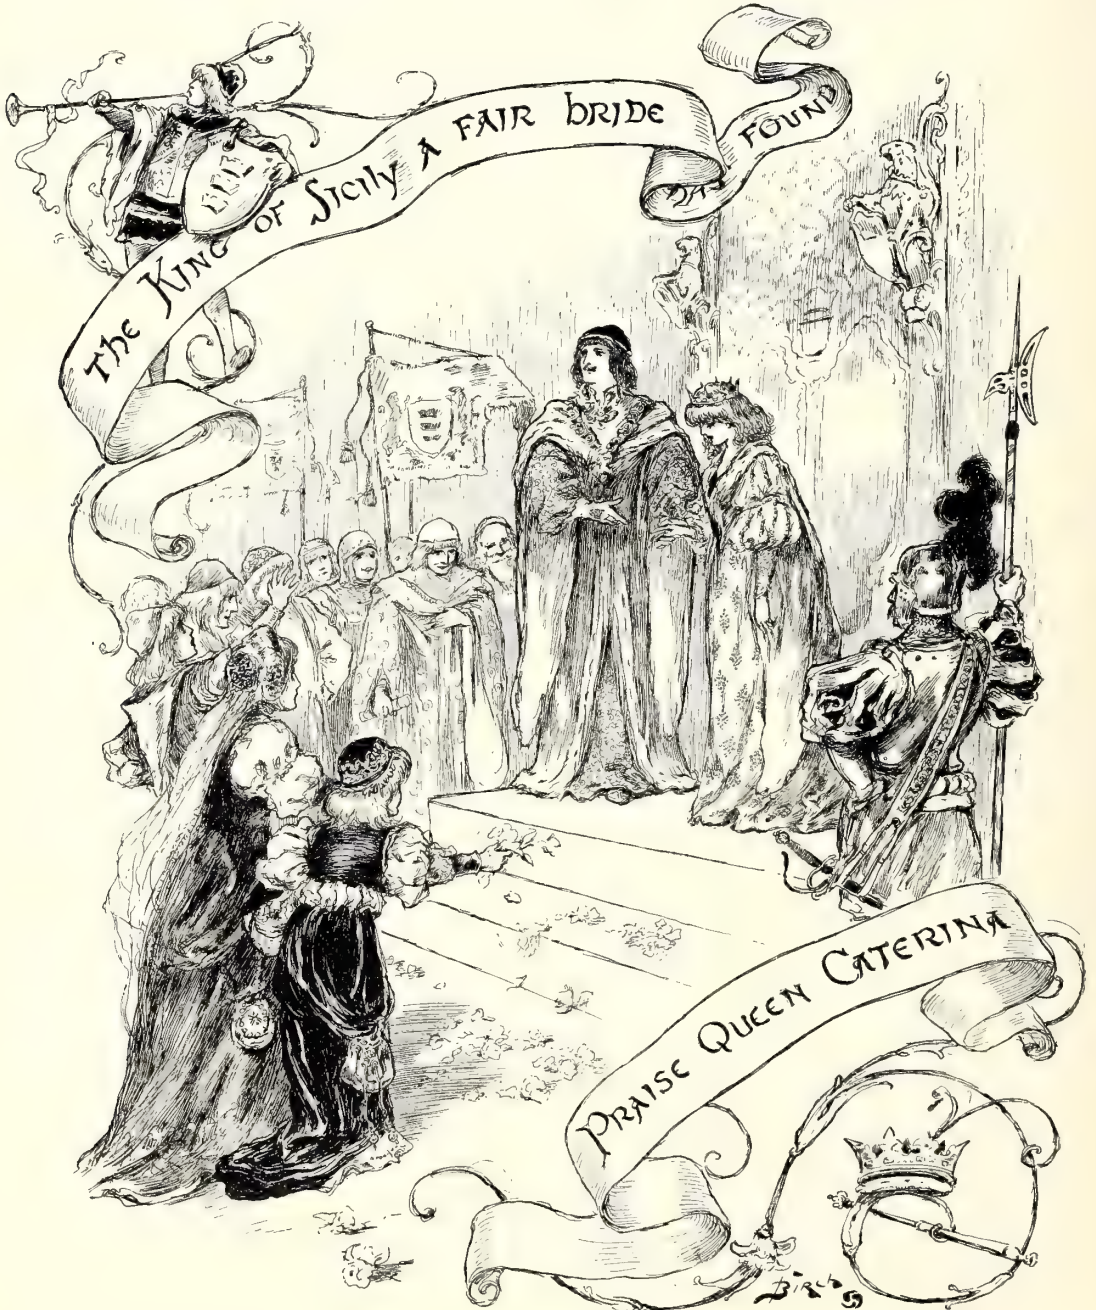 The KING OF Sicily A FAIR bRIDE
FOUND
PRAISE QUEEN CATERINA
Birch